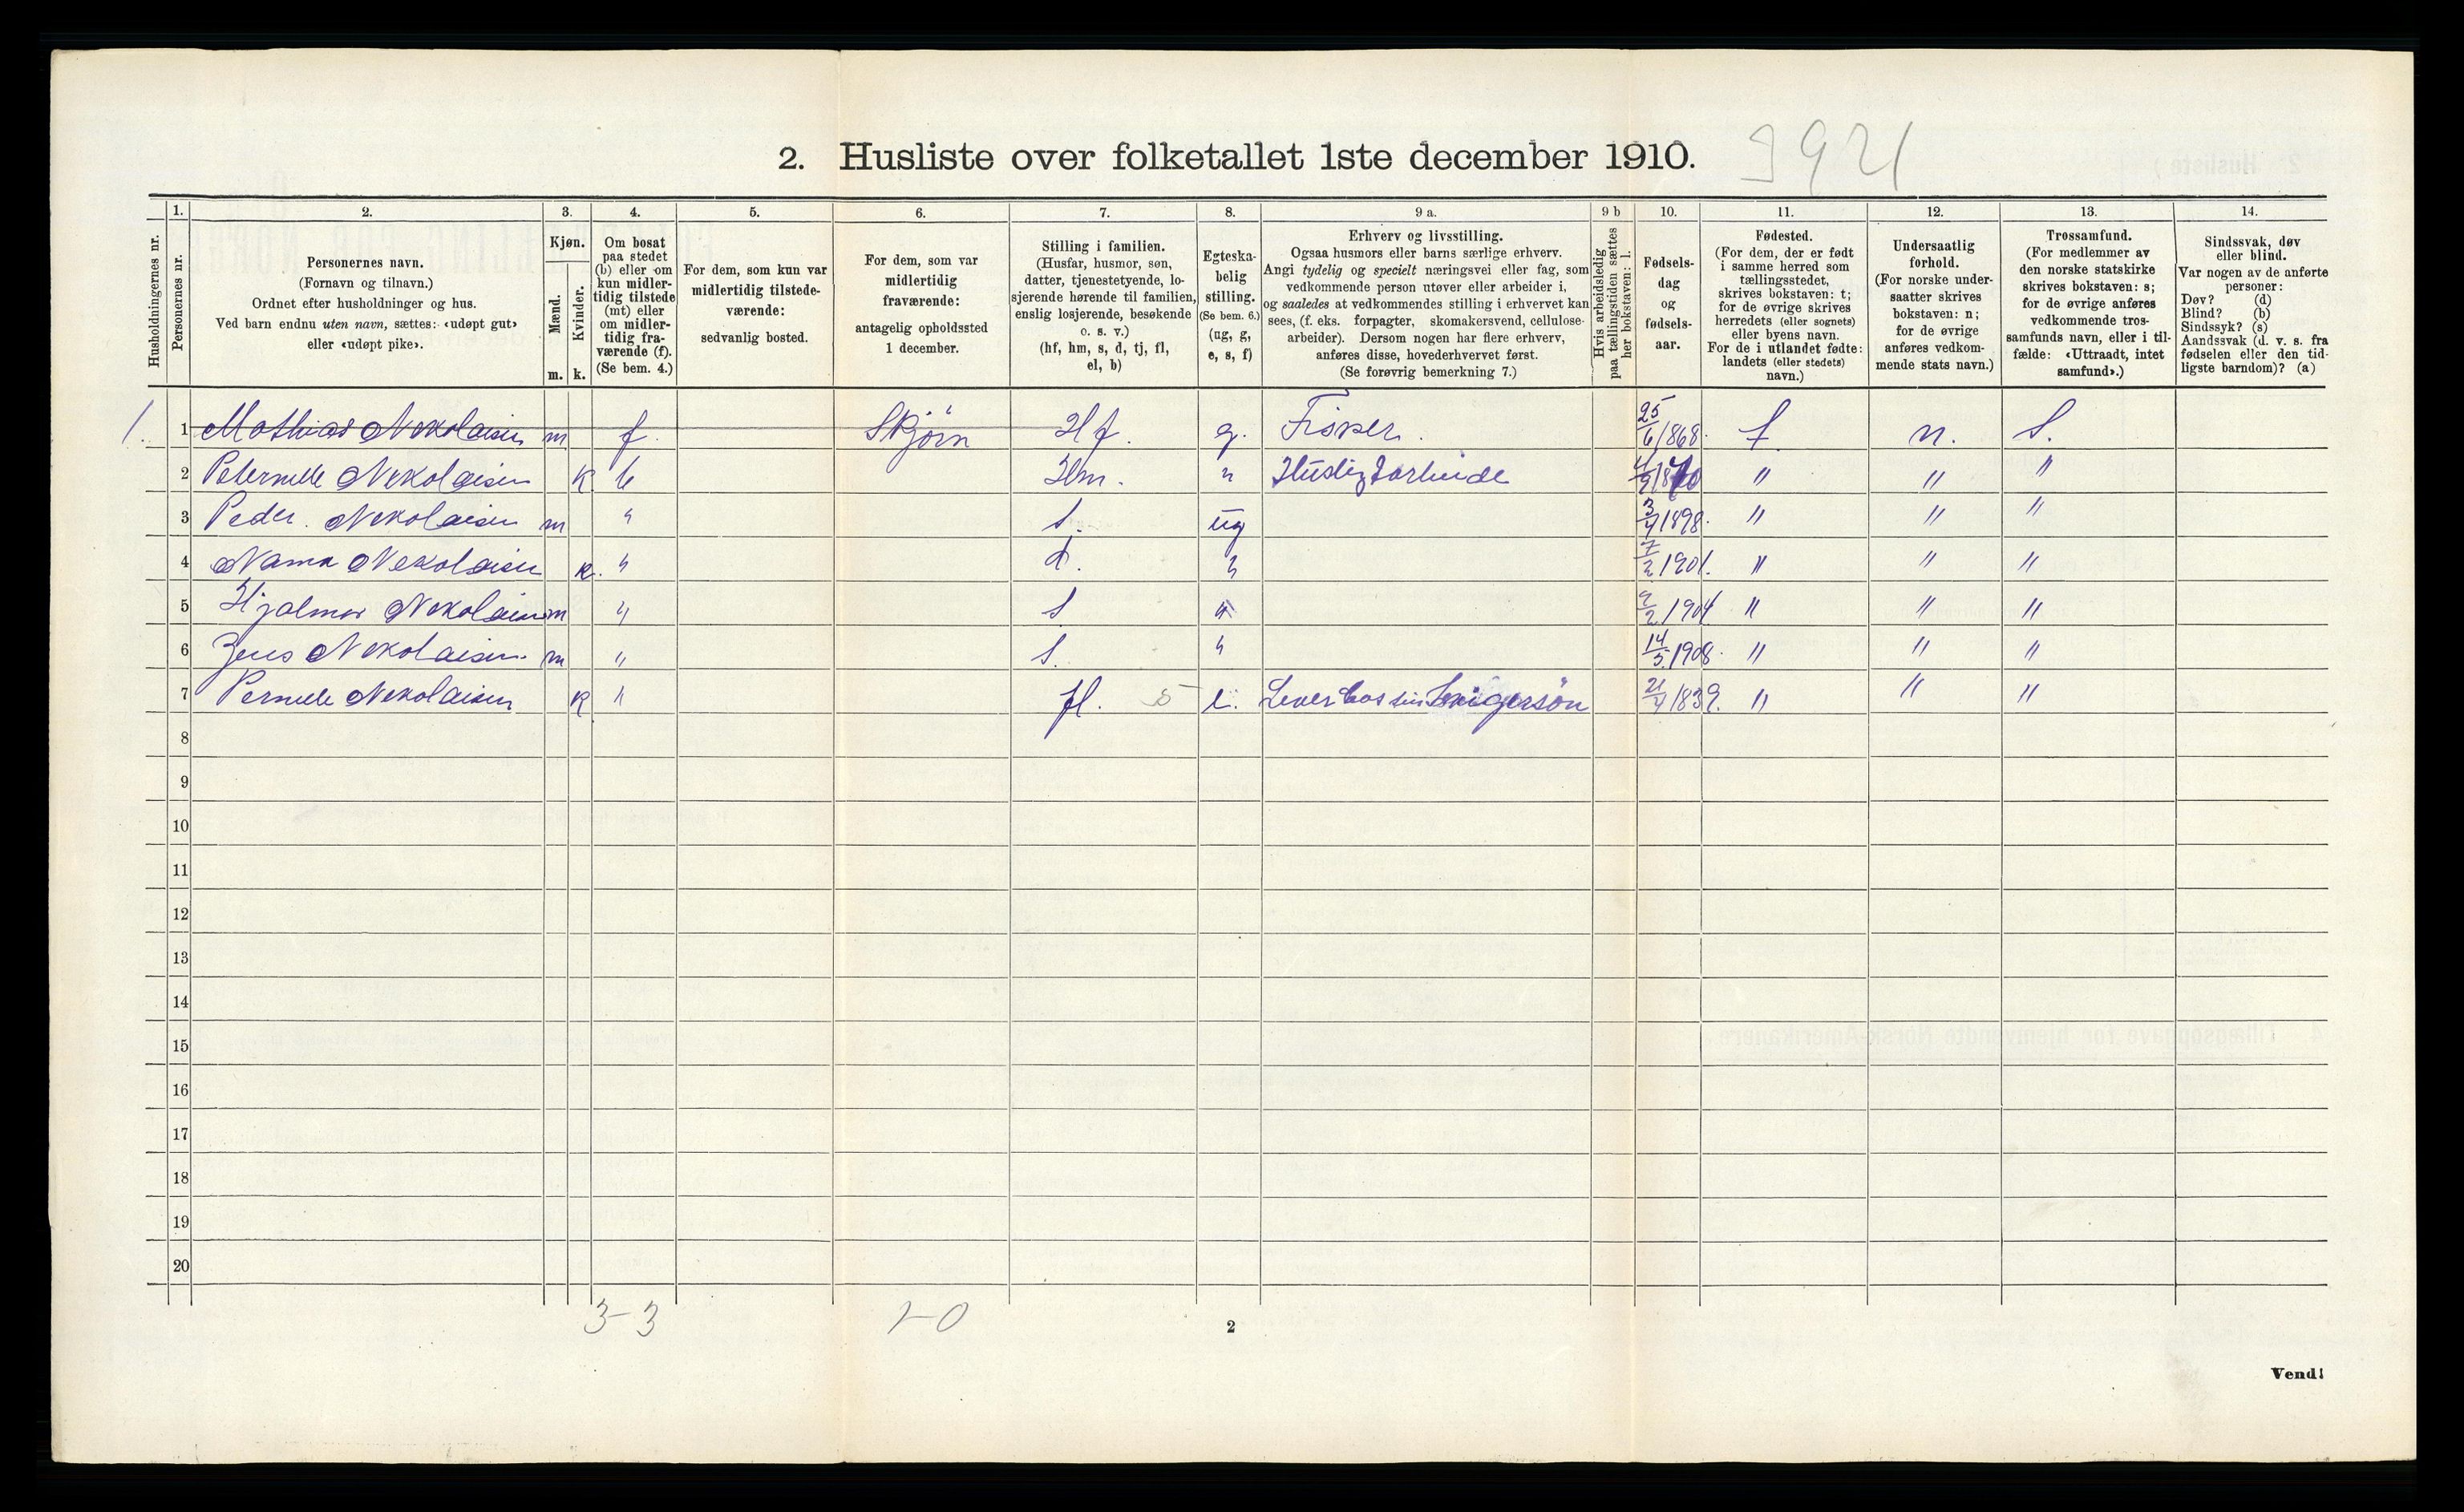 2. Husliste over folketallet 1ste december 1910. 3921
Husholdningernes nr.
1. Personernes nr.
2. Personernes navn. (Fornavn og tilnavn.) Ordnet efter husholdninger og hus. Ved barn endnu uten navn, sættes: «udøpt gut» eller «udøpt pike».
3. Kjøn. Mænd. m. Kvinder. k.
4. Om bosat paa stedet (b) eller om kun midlertidig tilstede (mt) eller om midlertidig fraværende (f). (Se bem. 4.)
5. For dem, som kun var midlertidig tilstedeværende: sedvanlig bosted.
6. For dem, som var midlertidig fraværende: antagelig opholdssted 1 december.
7. Stilling i familien. (Husfar, husmor, søn, datter, tjenestetyende, losjerende hørende til familien, enslig losjerende, besøkende o. s. v.) (hf, hm, s, d, tj, fl, el, b)
8. Egteskabelig stilling. (Se bem. 6.) (ug, g, e, s, f)
9 a. Erhverv og livsstilling. Ogsaa husmors eller barns særlige erhverv. Angi tydelig og specielt næringsvei eller fag, som vedkommende person utøver eller arbeider i, og saaledes at vedkommendes stilling i erhvervet kan sees, (f. eks. forpagter, skomakersvend, cellulosearbeider). Dersom nogen har flere erhverv, anføres disse, hovederhvervet først. (Se forøvrig bemerkning 7.)
9 b Hvis arbeidsledig paa tællingstiden sættes her bokstaven: l.
10. Fødselsdag og fødselsaar.
11. Fødested. (For dem, der er født i samme herred som tællingsstedet, skrives bokstaven: t; for de øvrige skrives herredets (eller sognets) eller byens navn. For de i utlandet fødte: landets (eller stedets) navn.)
12. Undersaatlig forhold. (For norske undersaatter skrives bokstaven: n; for de øvrige anføres vedkommende stats navn.)
13. Trossamfund. (For medlemmer av den norske statskirke skrives bokstaven: s; for de øvrige anføres vedkommende trossamfunds navn, eller i tilfælde: «Uttraadt, intet samfund».)
14. Sindssvak, døv eller blind. Var nogen av de anførte personer: Døv? (d) Blind? (b) Sindssyk? (s) Aandssvak (d. v. s. fra fødselen eller den tidligste barndom)? (a)
1. 1 Mathias Nekolaisen m f. Skjørn Hf. g. Fisker. 25/6 1868. t n. S.
2 Peternelle Nekolaisen k b Hm. " Husligt arbeide 4/9 1870 " " "
3 Peder. Nekolaisen m " s. ug 3/4 1898. " " "
4 Nama Nekolaisen k. " d. " 7/2 1901. " " "
5 Hjalmar Nekolaisen m " s " 9/2 1904. " " "
6 Jens Nekolaisen. m " s. " 14/5 1908. " " "
7 Pernelle Nekolaisen k " fl. 5 e. Lever hos sin Svigersön 21/4 1839. " " "
8
9
10
11
12
13
14
15
16
17
18
19
20
3-3 1-0
2
Vend!